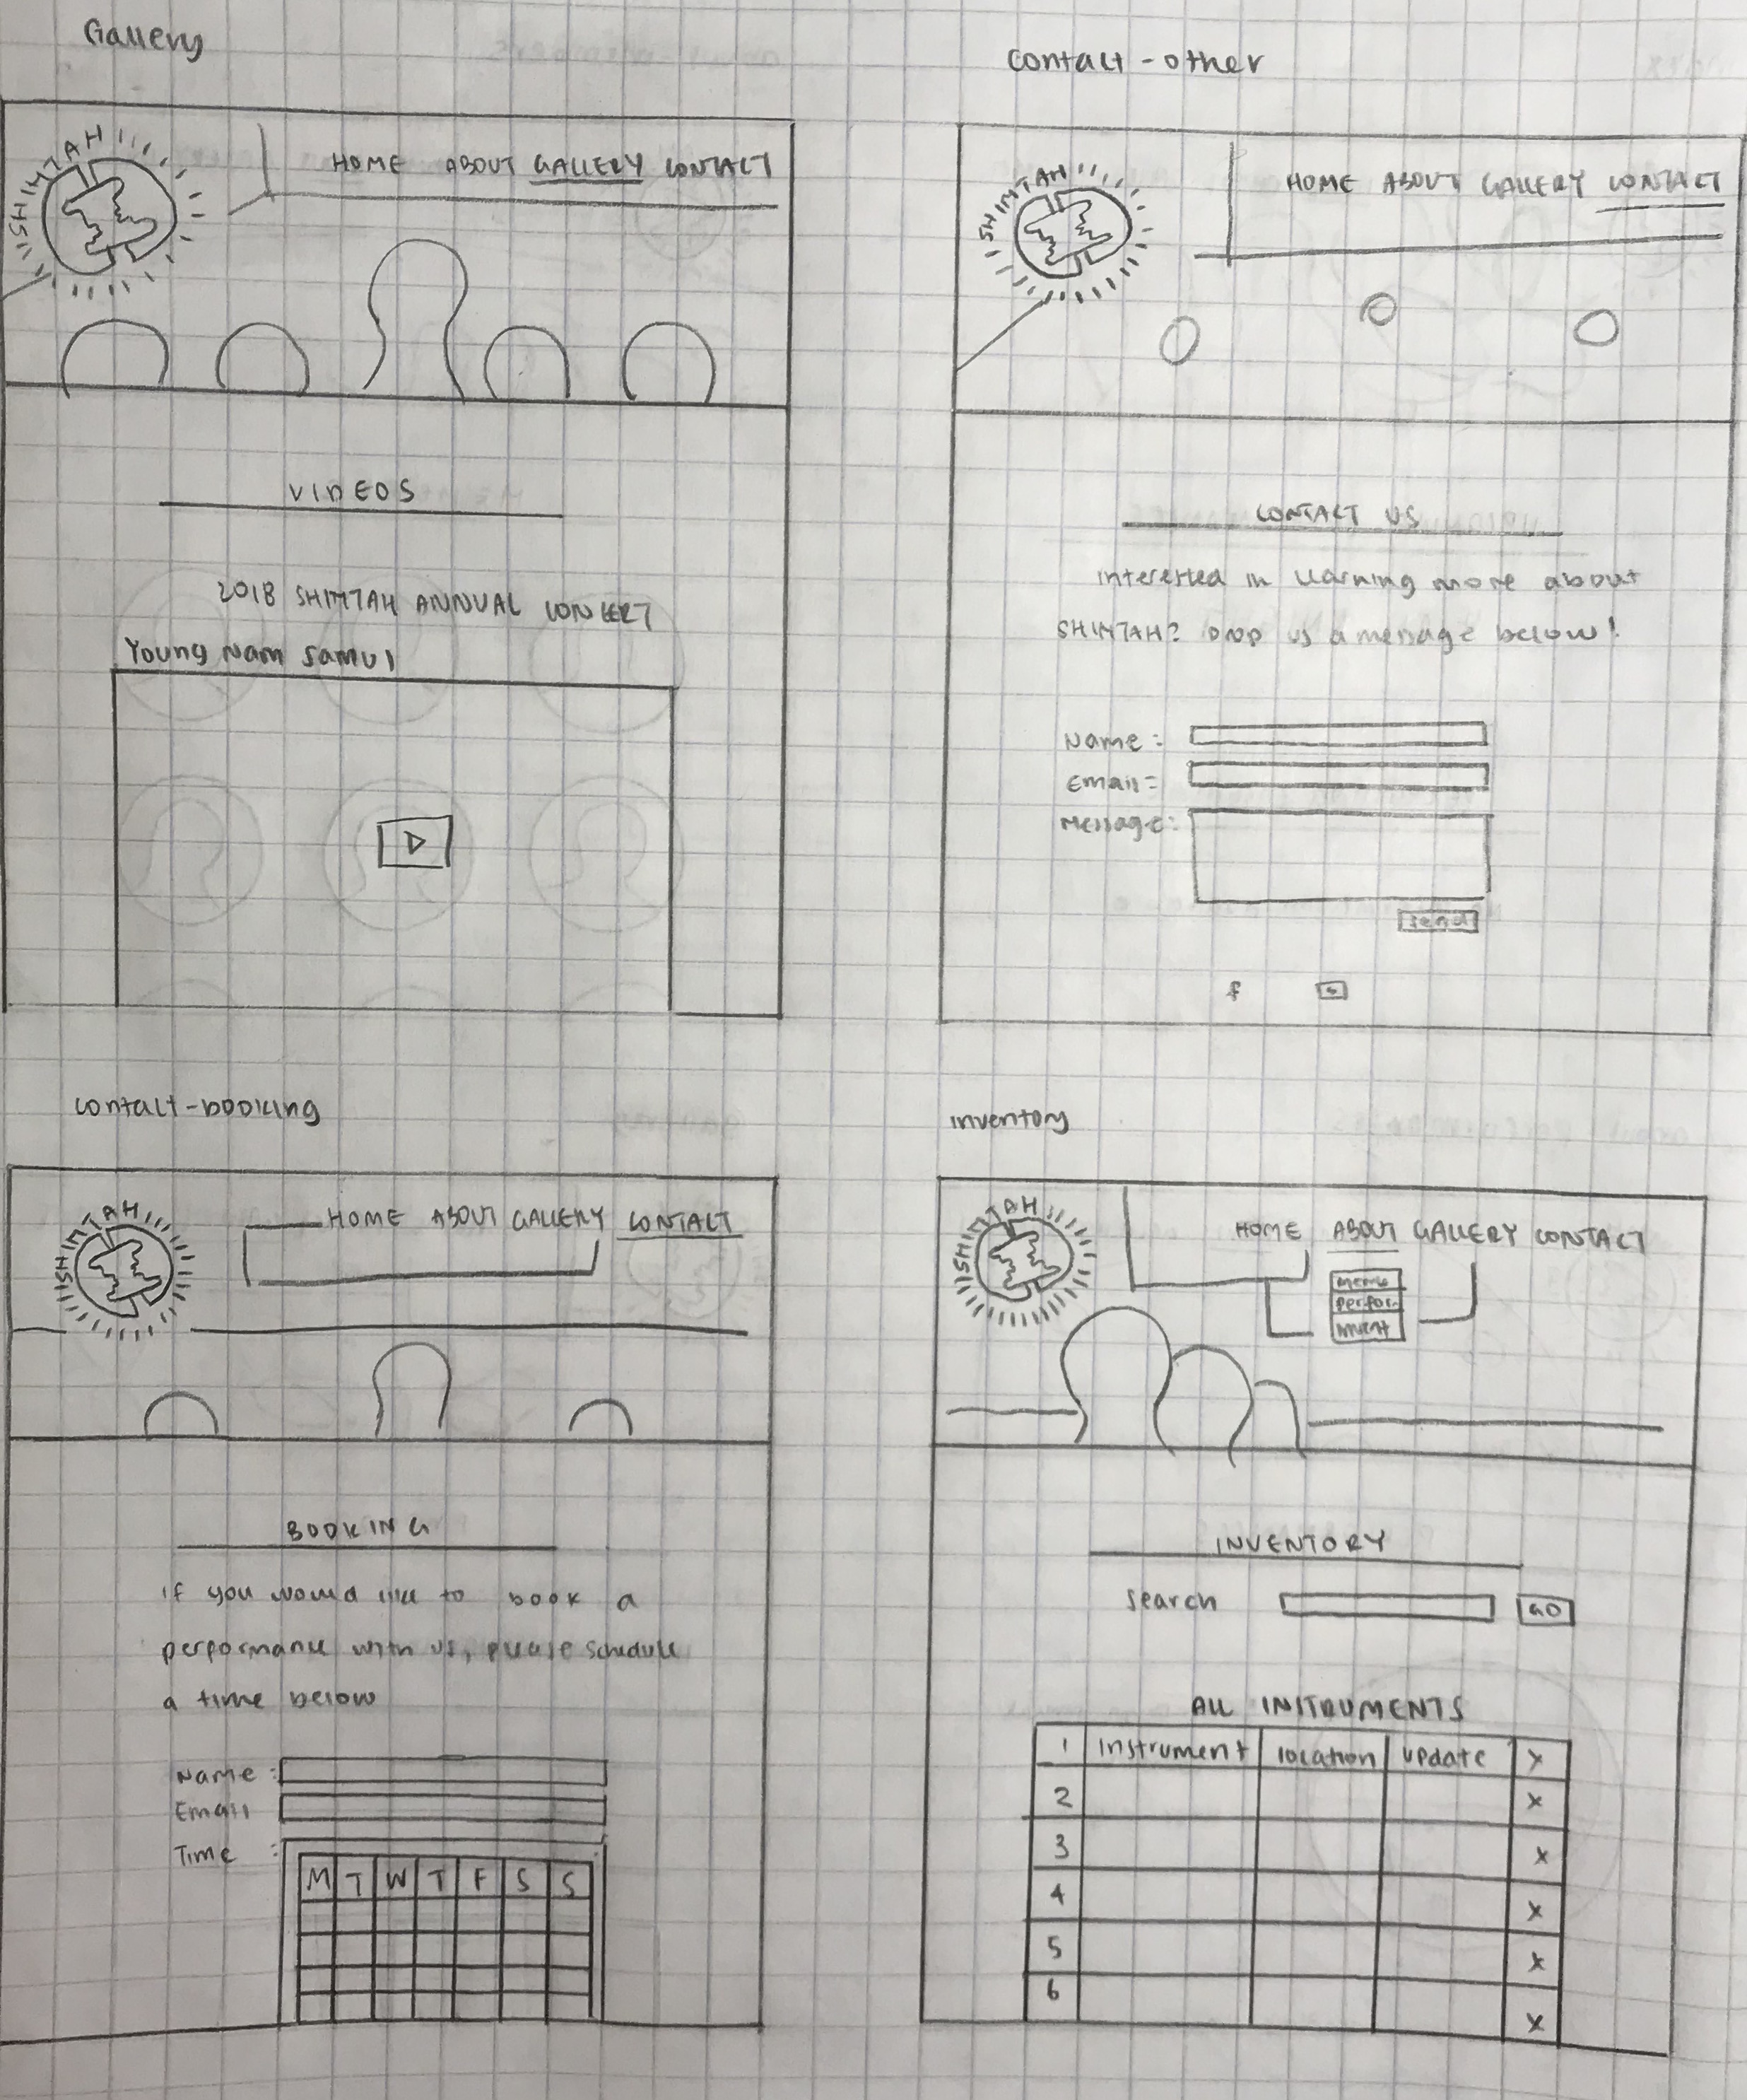 Gallery
SHIMTAH
HOME ABOUT GALLERY CONTACT
VIDEOS
2018 SHIMTAH ANNUAL CONCERT
Young Nam Samul
contact-other
SHIMTAH
HOME ABOUT GALLERY CONTACT
CONTACT US
interested in learning more about
SHIMTAH? Drop us a message below!
Name:
Email:
Message:
send
f
contact-booking
SHIMTAH
HOME ABOUT GALLERY CONTACT
BOOKING
if you would like to book a
performance with us, please schedule
a time below
Name:
Email
Time:
M T W T F S S
inventory
SHIMTAH
HOME ABOUT GALLERY CONTACT
perfor-
invent
INVENTORY
search GO
ALL INSTRUMENTS
1 instrument location update x
2 x
3 x
4 x
5 x
6 x